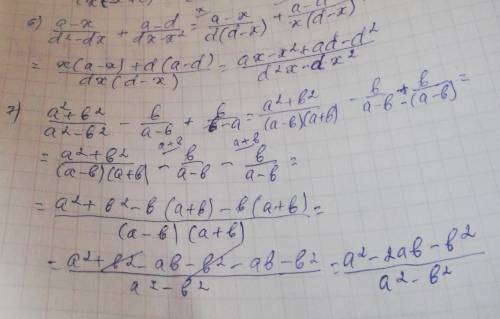 6) (a-x)/(d²-dx) + (a-d)/(dx-x²) = (a-x)/(d(d-x)) + (a-d)/(x(d-x))
= (x(a-x)+d(a-d))/(dx(d-x)) = (ax-x²+ad-d²)/(d²x-dx²)
7) (a²+b²)/(a²-b²) - b/(a-b) + b/(b-a) = (a²+b²)/((a-b)(a+b)) - b/(a-b) + b/(-(a-b)) =
= (a²+b²)/((a-b)(a+b)) - b/(a-b) - b/(a-b) =
= (a²+b²-b(a+b)-b(a+b))/((a-b)(a+b)) =
= (a²+b²-ab-b²-ab-b²)/(a²-b²) = (a²-2ab-b²)/(a²-b²)